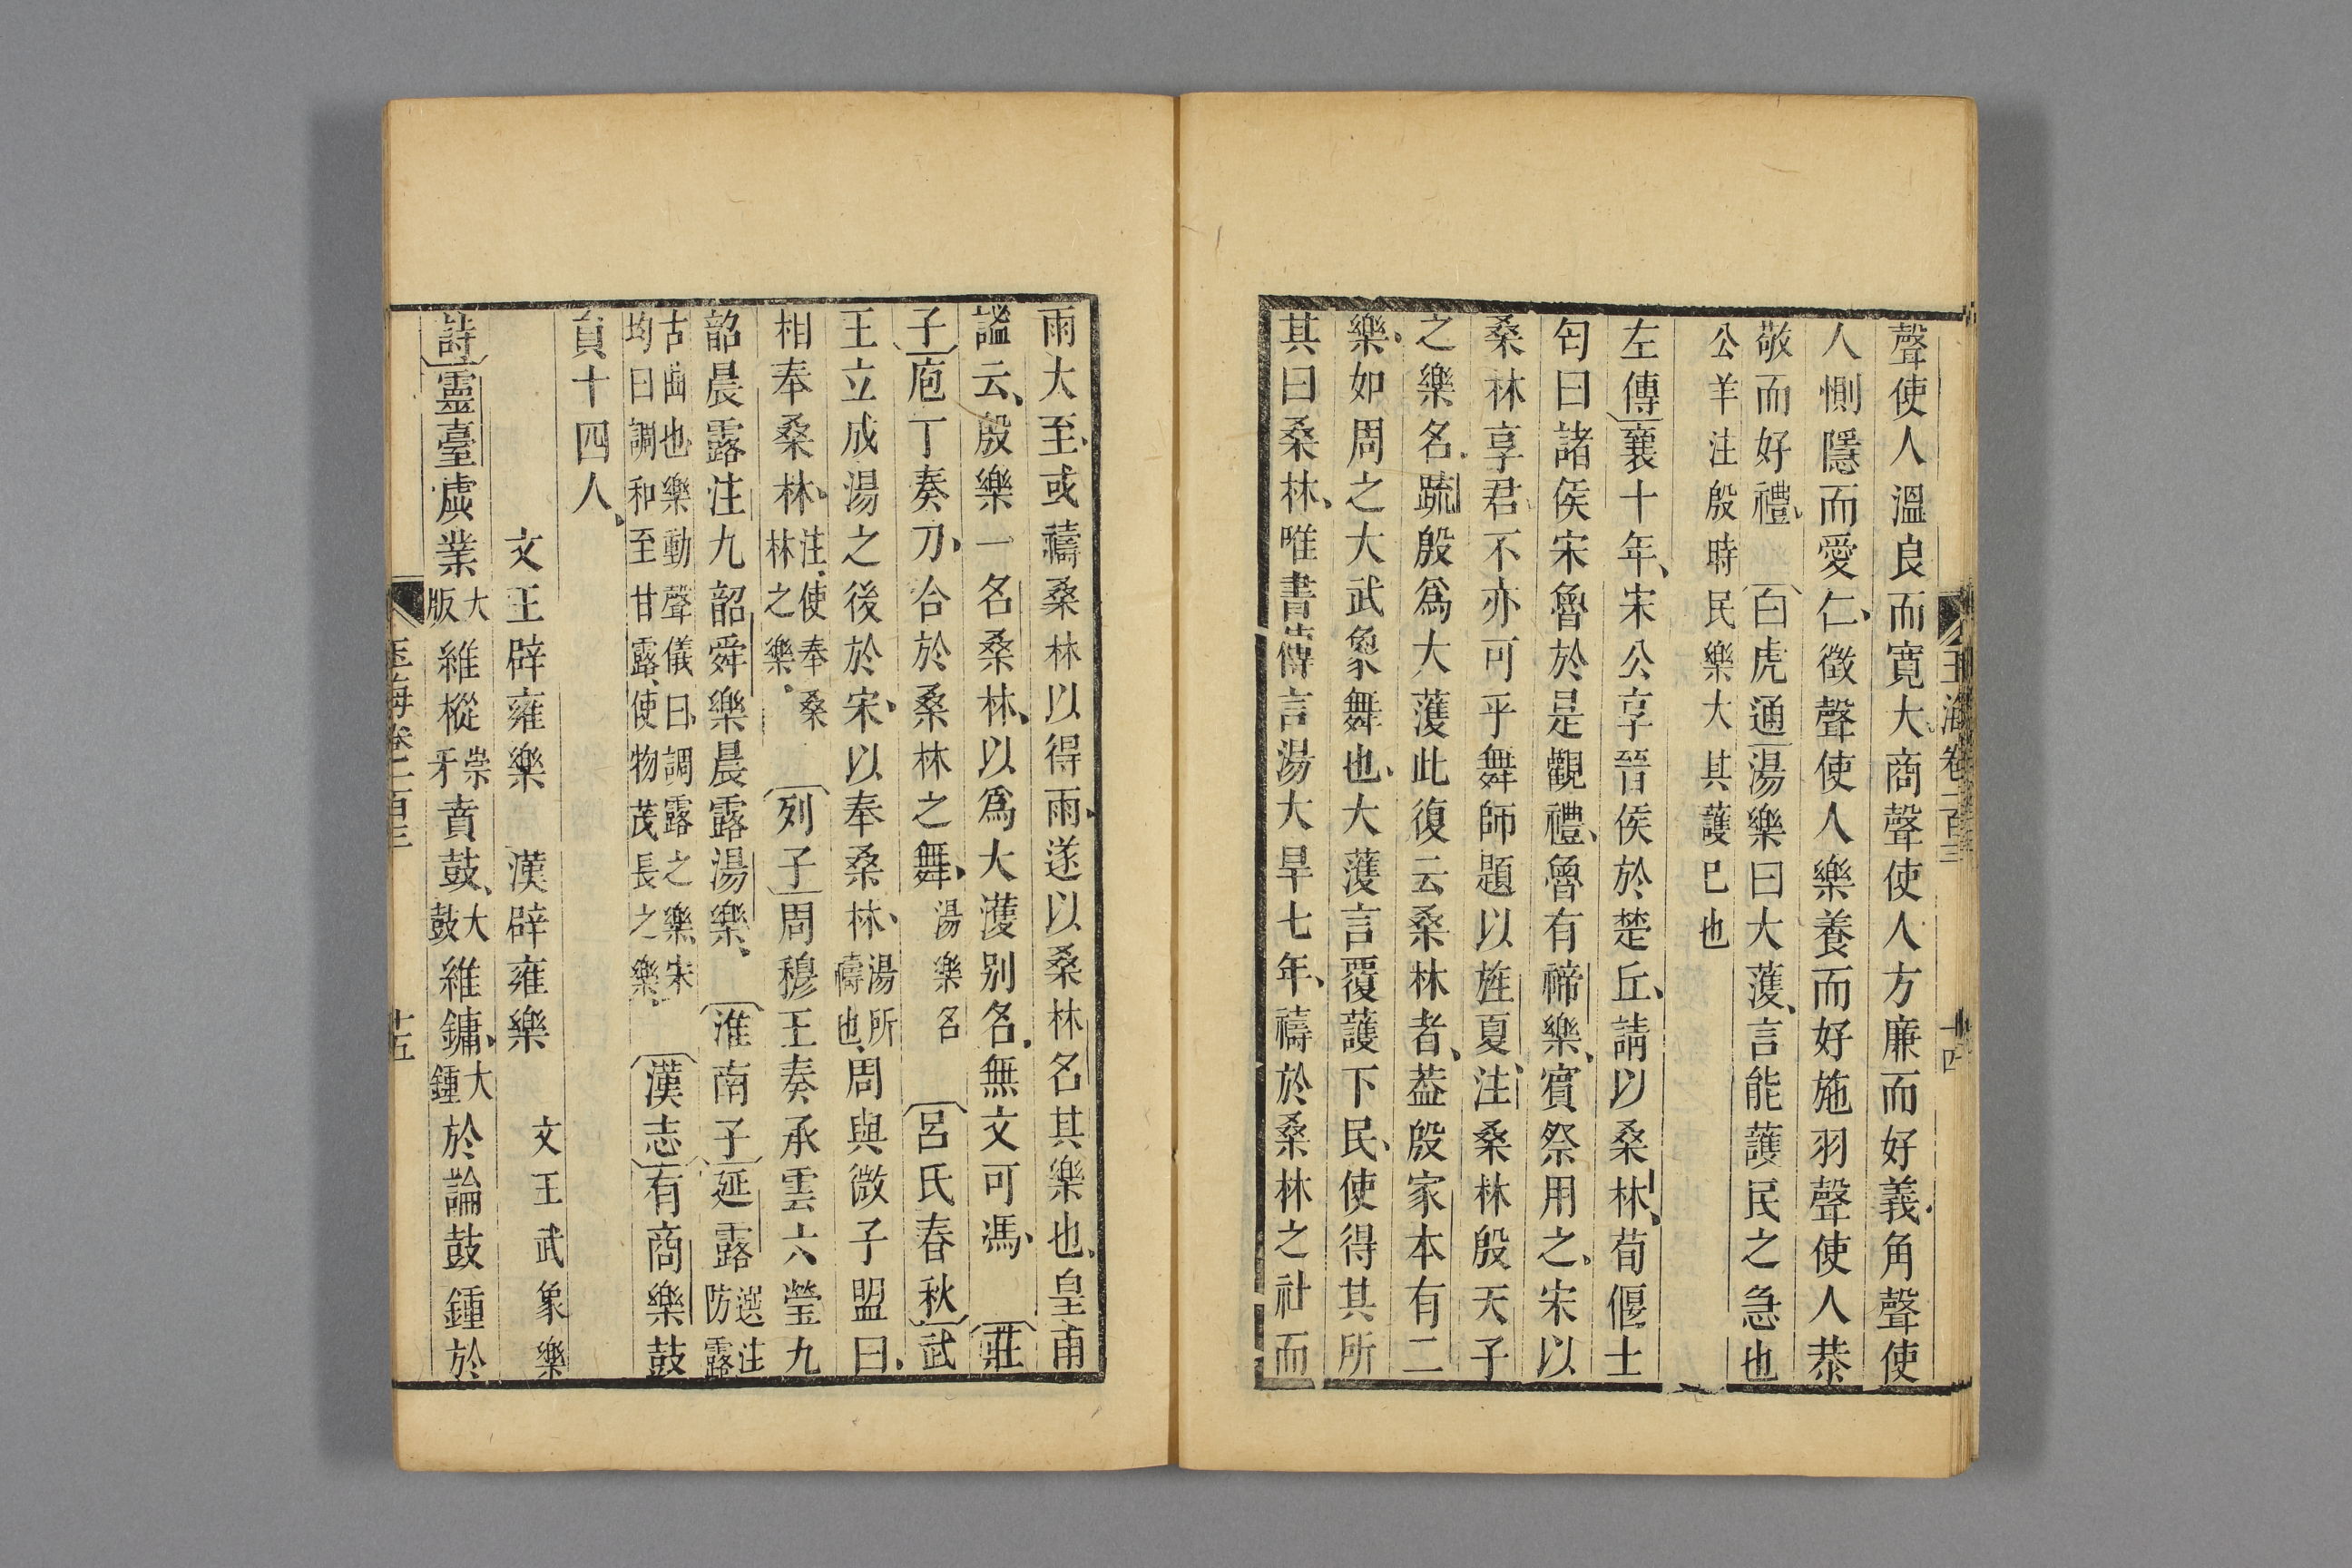 玉海卷一百三 十四
聲使人溫良而寬大商聲使人方廉而好義角聲使
人惻隱而愛仁徵聲使人樂養而好施羽聲使人恭
敬而好禮白虎通湯樂曰大濩言能護民之急也
公羊注殷時民樂大其護巳也
左傳襄十年宋公享晉侯於楚丘請以桑林荀偃士
匄曰諸侯宋魯於是觀禮魯有禘樂賓祭用之宋以
桑林享君不亦可乎舞師題以旌夏注桑林殷天子
之樂名疏殷爲大濩此復云桑林者葢殷家本有二
樂如周之大武象舞也大濩言覆護下民使得其所
其曰桑林唯書傳言湯大旱七年禱於桑林之社而
雨大至或禱桑林以得雨遂以桑林名其樂也皇甫
謐云殷樂一名桑林以爲大濩别名無文可馮莊
子庖丁奏刀合於桑林之舞湯樂名呂氏春秋武
王立成湯之後於宋以奉桑林湯所禱也周與微子盟曰
相奉桑林注使奉桑林之樂列子周穆王奏承雲六瑩九
韶晨露注九韶舜樂晨露湯樂淮南子延露選注防露
古曲也樂動聲儀曰調露之樂宋均曰調和至甘露使物茂長之樂漢志有商樂鼓
員十四人
文王武象樂
文王辟雍樂 漢辟雍樂
詩靈臺虡業大版維樅崇牙賁鼓大鼓維鏞大鍾於論鼓鍾於
玉海卷一百三 十五